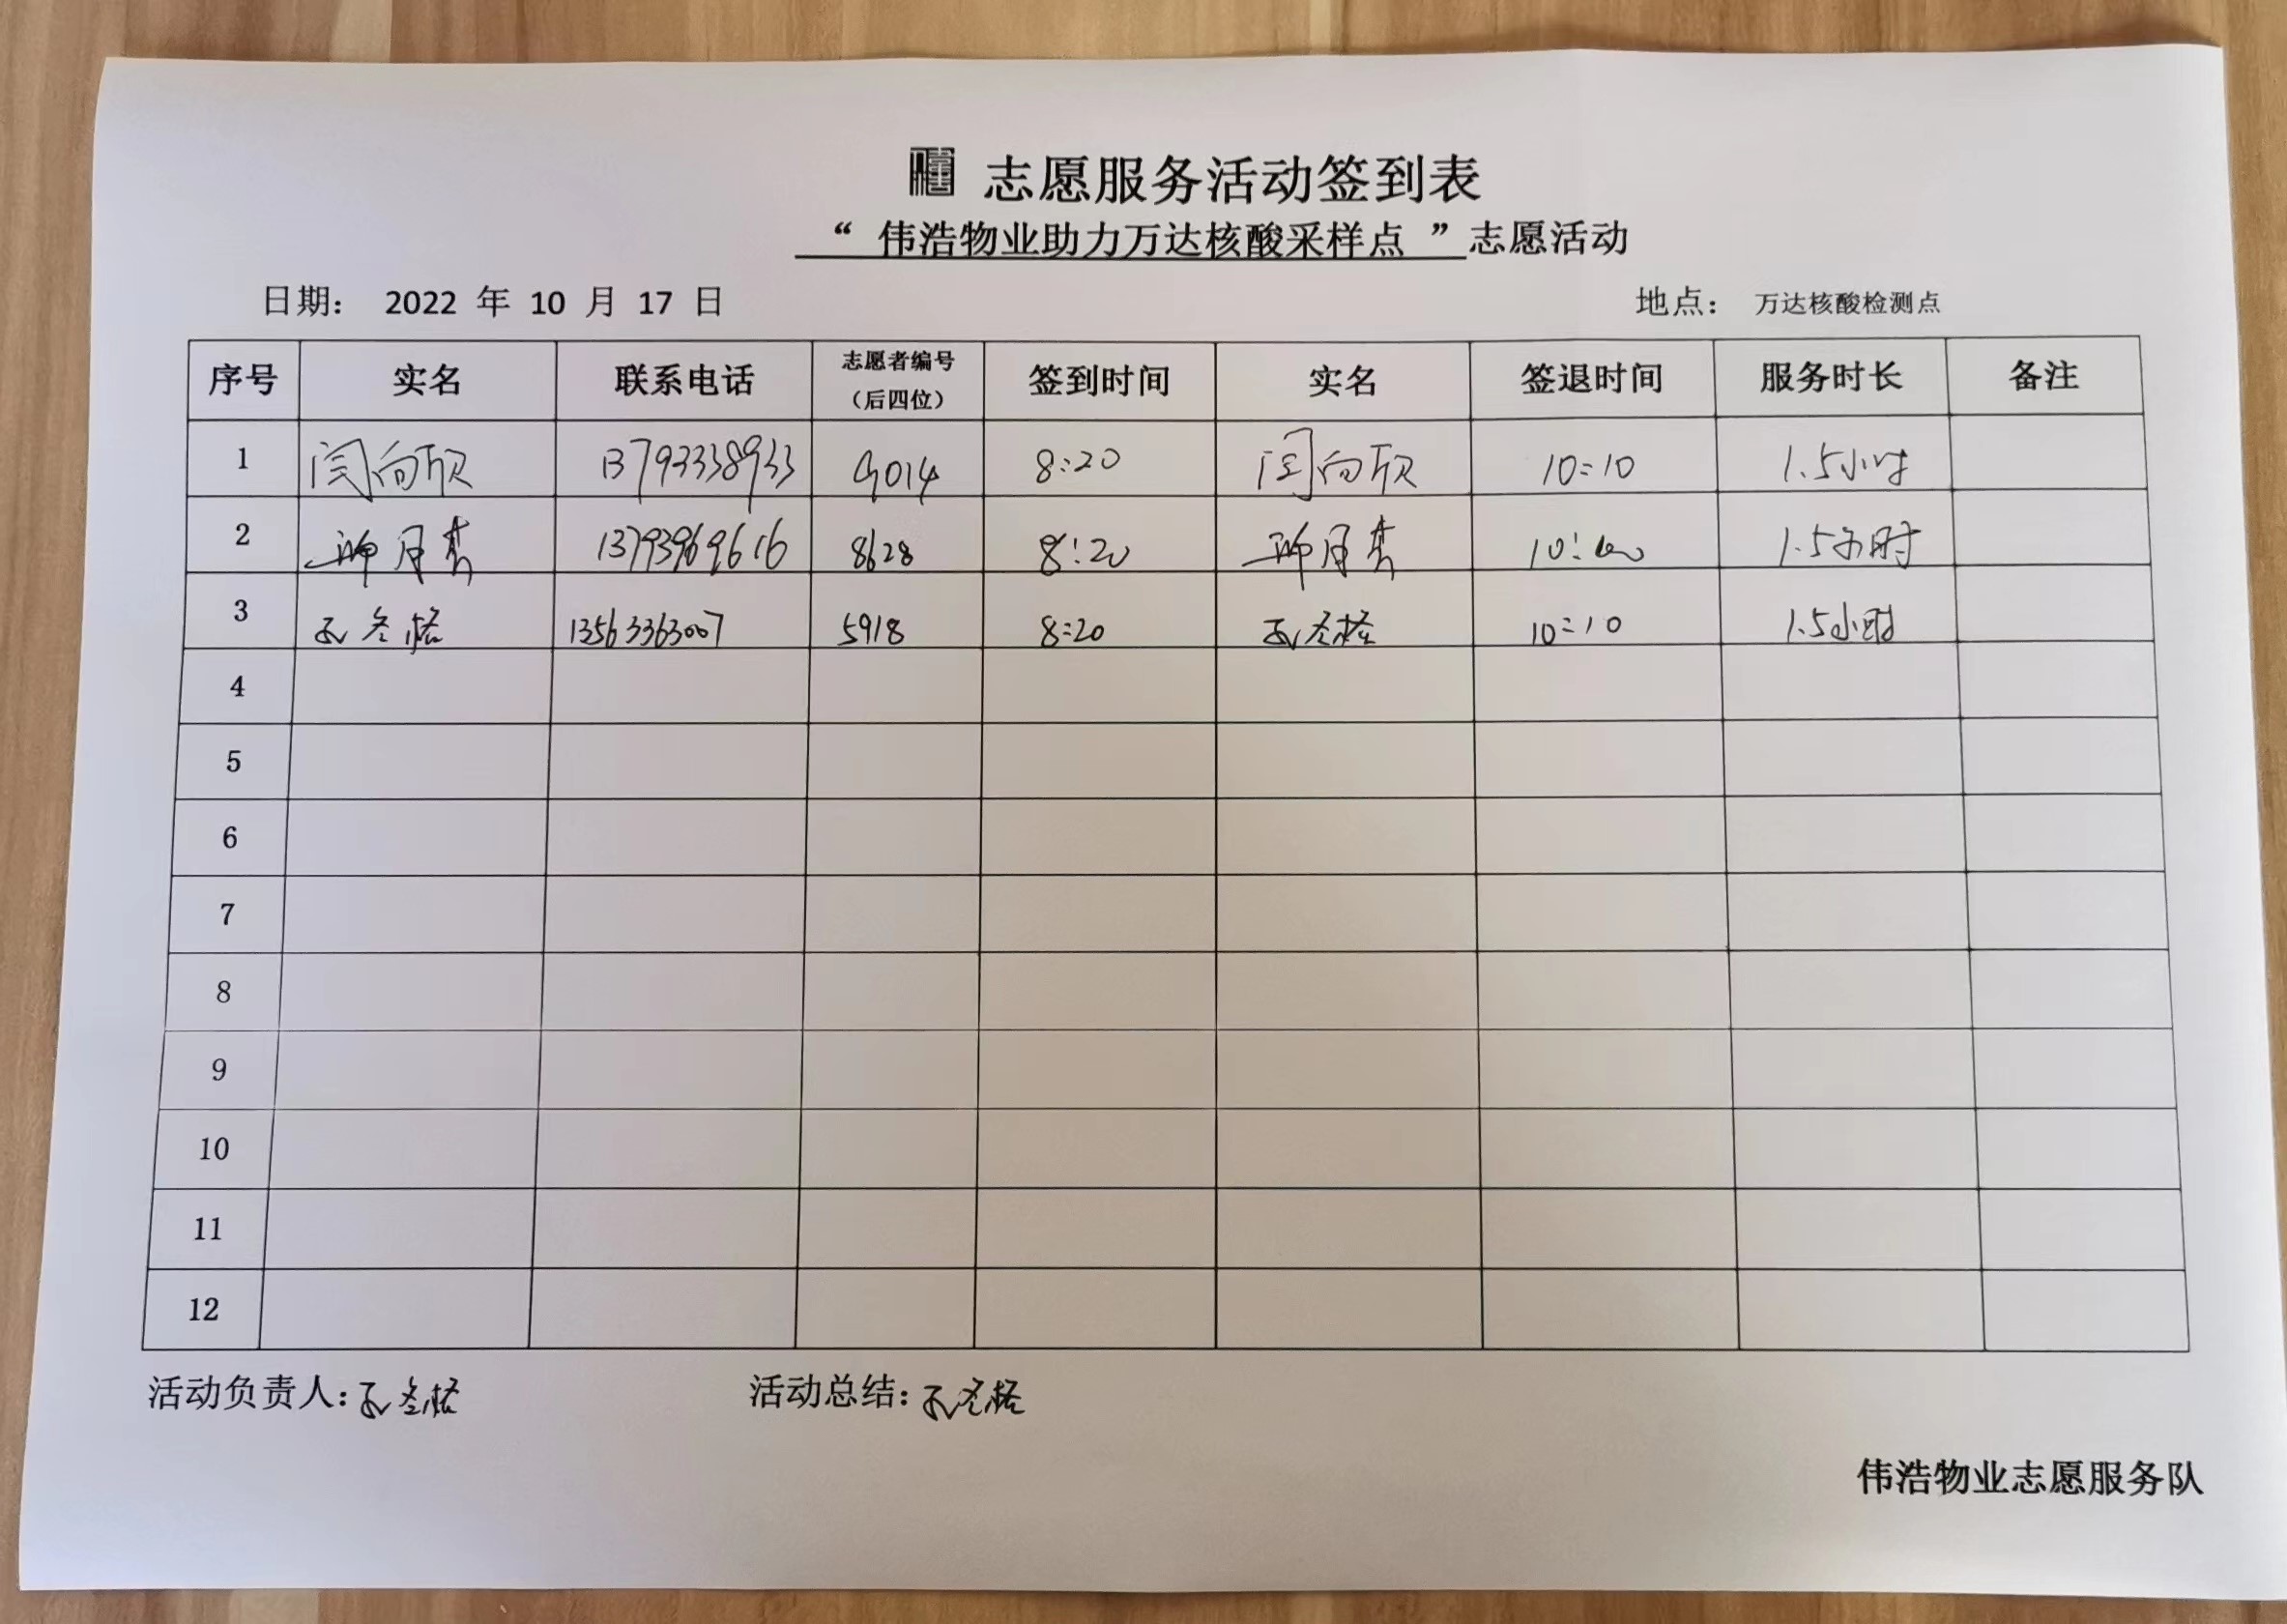 志愿服务活动签到表
“ 伟浩物业助力万达核酸采样点 ”志愿活动
日期： 2022 年 10 月 17 日 地点： 万达核酸检测点
序号 实名 联系电话 志愿者编号（后四位） 签到时间 实名 签退时间 服务时长 备注
1 闫向欣 13793338933 9014 8:20 闫向欣 10:10 1.5小时
2 13793969616 8628 8:20 1.5小时
3 13563363007 5918 8:20 10:10 1.5小时
4
5
6
7
8
9
10
11
12
活动负责人： 活动总结：
伟浩物业志愿服务队